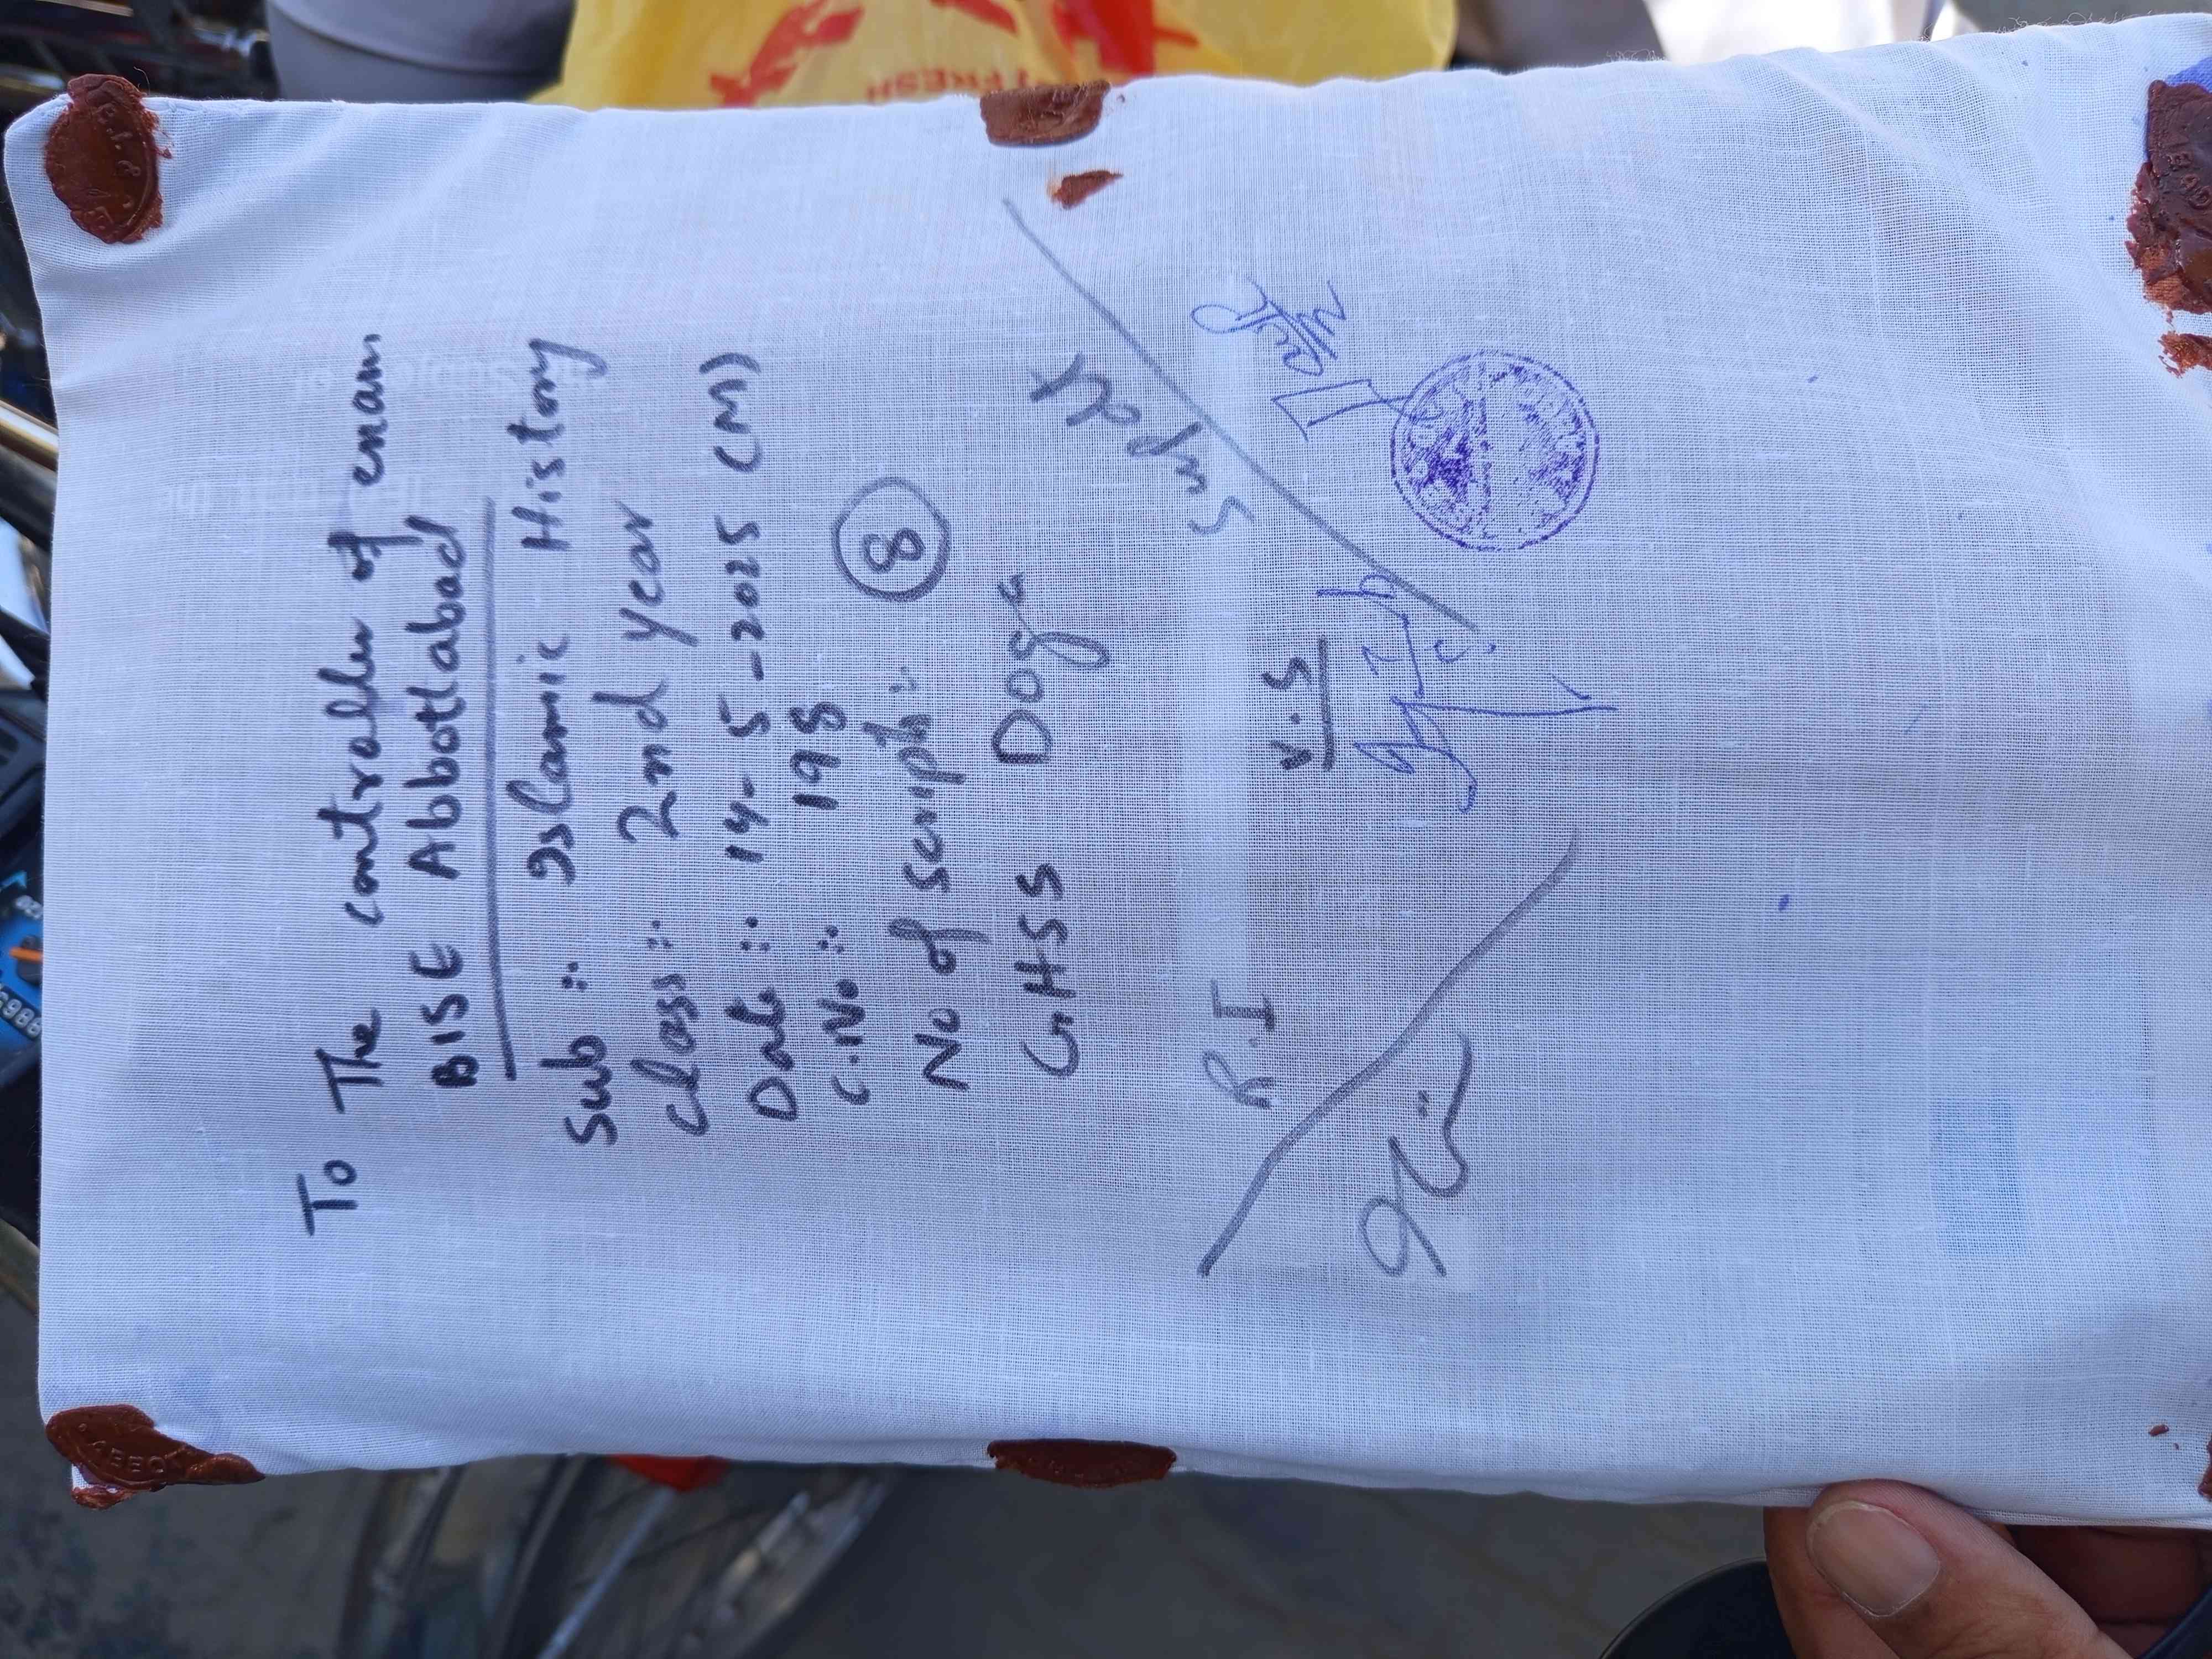 To The controller of enam
BISE Abbottabad
Sub :: Islamic History
Class :: 2nd year
Date :: 14-5-2025 (M)
C.No :: 198
No of script :: 8
GHSS Doga
R.I
V.S
Supdt